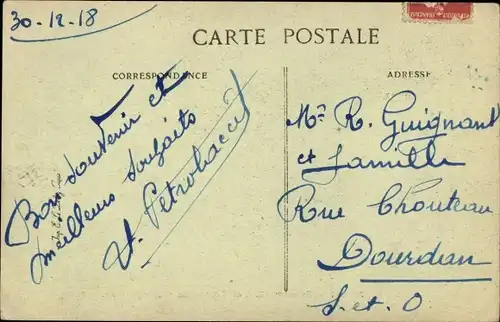 30-12-18
CARTE POSTALE
CORRESPONDANCE
ADRESSE
Bon souvenir et
meilleurs souhaits
Mr R. Guignant
et famille
Rue Chouteau
Dourdan
S. et O